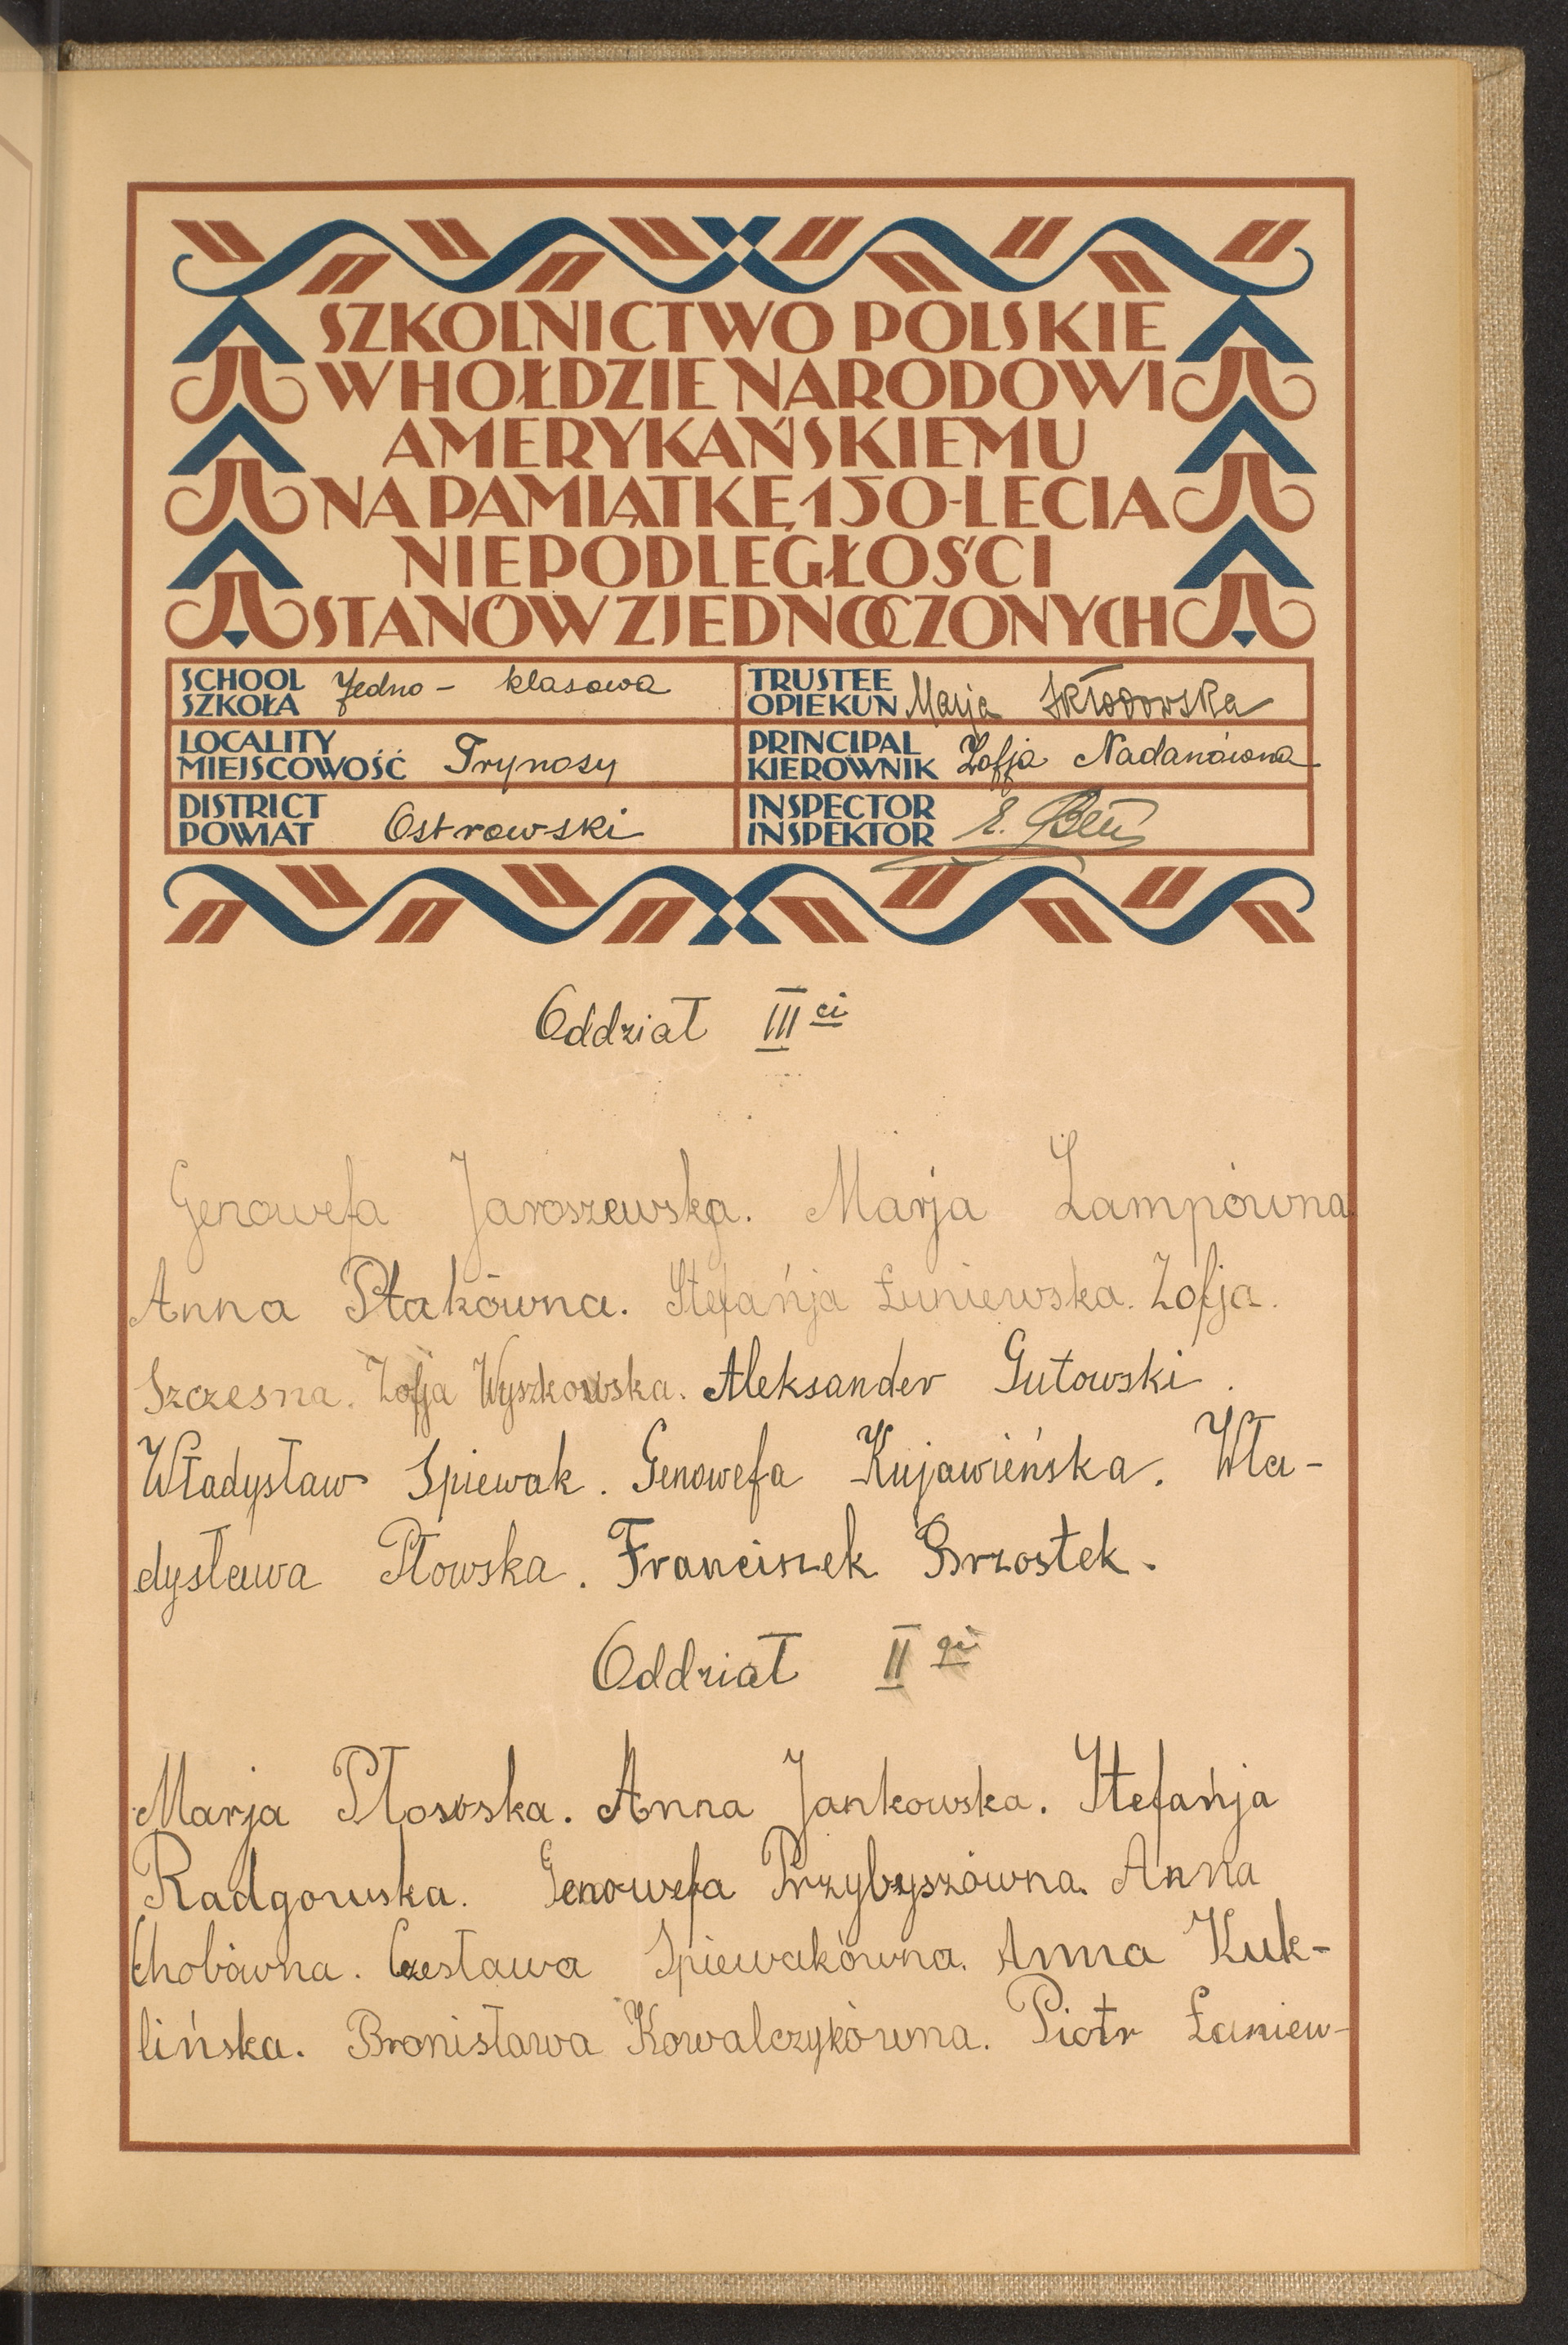 SZKOLNICTWO POLSKIE
W HOŁDZIE NARODOWI
AMERYKAŃSKIEMU
NA PAMIĄTKĘ 150-LECIA
NIEPODLEGŁOŚCI
STANÓW ZJEDNOCZONYCH
SCHOOL
SZKOŁA Jedno - klasowa
TRUSTEE
OPIEKUN Marja Skłodowska
LOCALITY
MIEJSCOWOŚĆ Trynosy
PRINCIPAL
KIEROWNIK Zofja Nadanówna
DISTRICT
POWIAT Ostrowski
INSPECTOR
INSPEKTOR
Oddział III ci
Genowefa Jaroszewska. Marja Lampówna
Anna Ptakówna. Stefańja Łuniewska. Zofja.
Szczesna. Zofja Wyszkowska. Aleksander Gutowski.
Władysław Spiewak. Genowefa Kujawieńska. Wła-
dysława Płowska. Franciszek Brzostek.
Oddział II gi
Marja Płososka. Anna Jankowska. Stefańja
Radgowska. Genowefa Przybyszówna. Anna
Chobówna. Czesława Spiewakówna. Anna Kuk-
lińska. Bronisława Kowalczykówna. Piotr Łaniew-